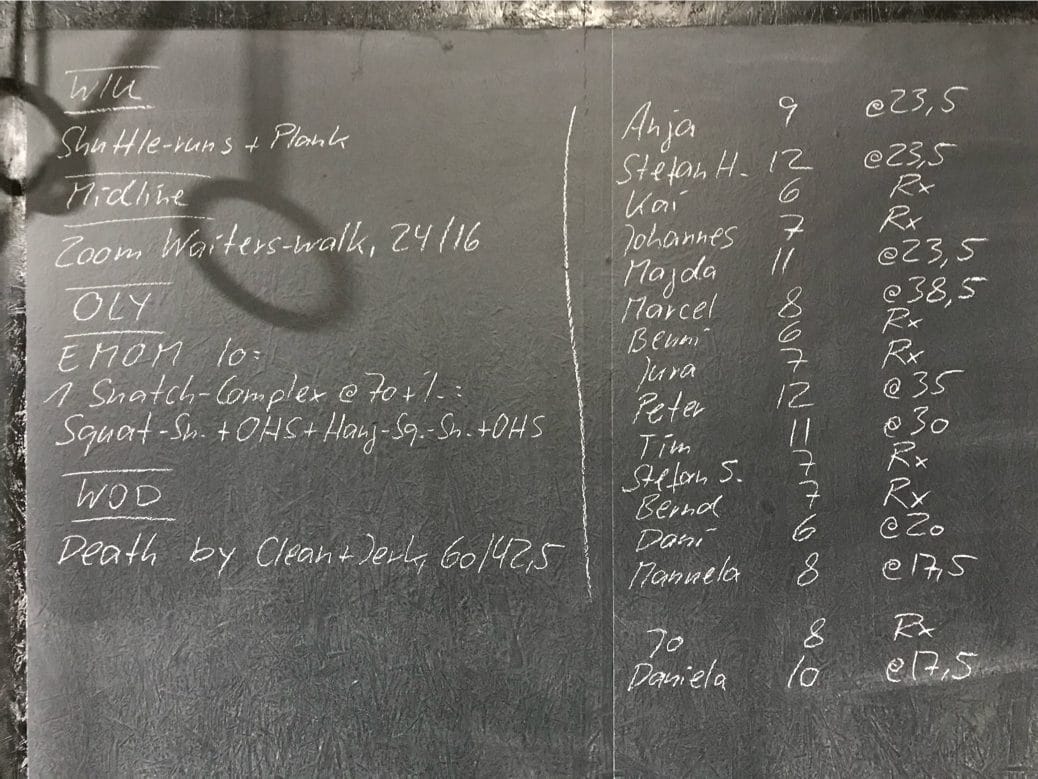 W/U
Shuttle-runs + Plank
Midline
200m Waiters-walk, 24/16
OLY
EMOM 10:
1 Snatch-Complex @ 70+%:
Squat-Sn. + OHS + Hang-Sq.-Sn. + OHS
WOD
Death by Clean+Jerk, 60/42,5
Anja 9 @23,5
Stefan H. 12 @23,5
Kai 6 Rx
Johannes 7 Rx
Majda 11 @23,5
Marcel 8 @38,5
Benni 6 Rx
Jura 7 Rx
Peter 12 @35
Tim 11 @30
Stefan S. 7 Rx
Bernd 7 Rx
Dani 6 @20
Manuela 8 @17,5
Jo 8 Rx
Daniela 10 @17,5